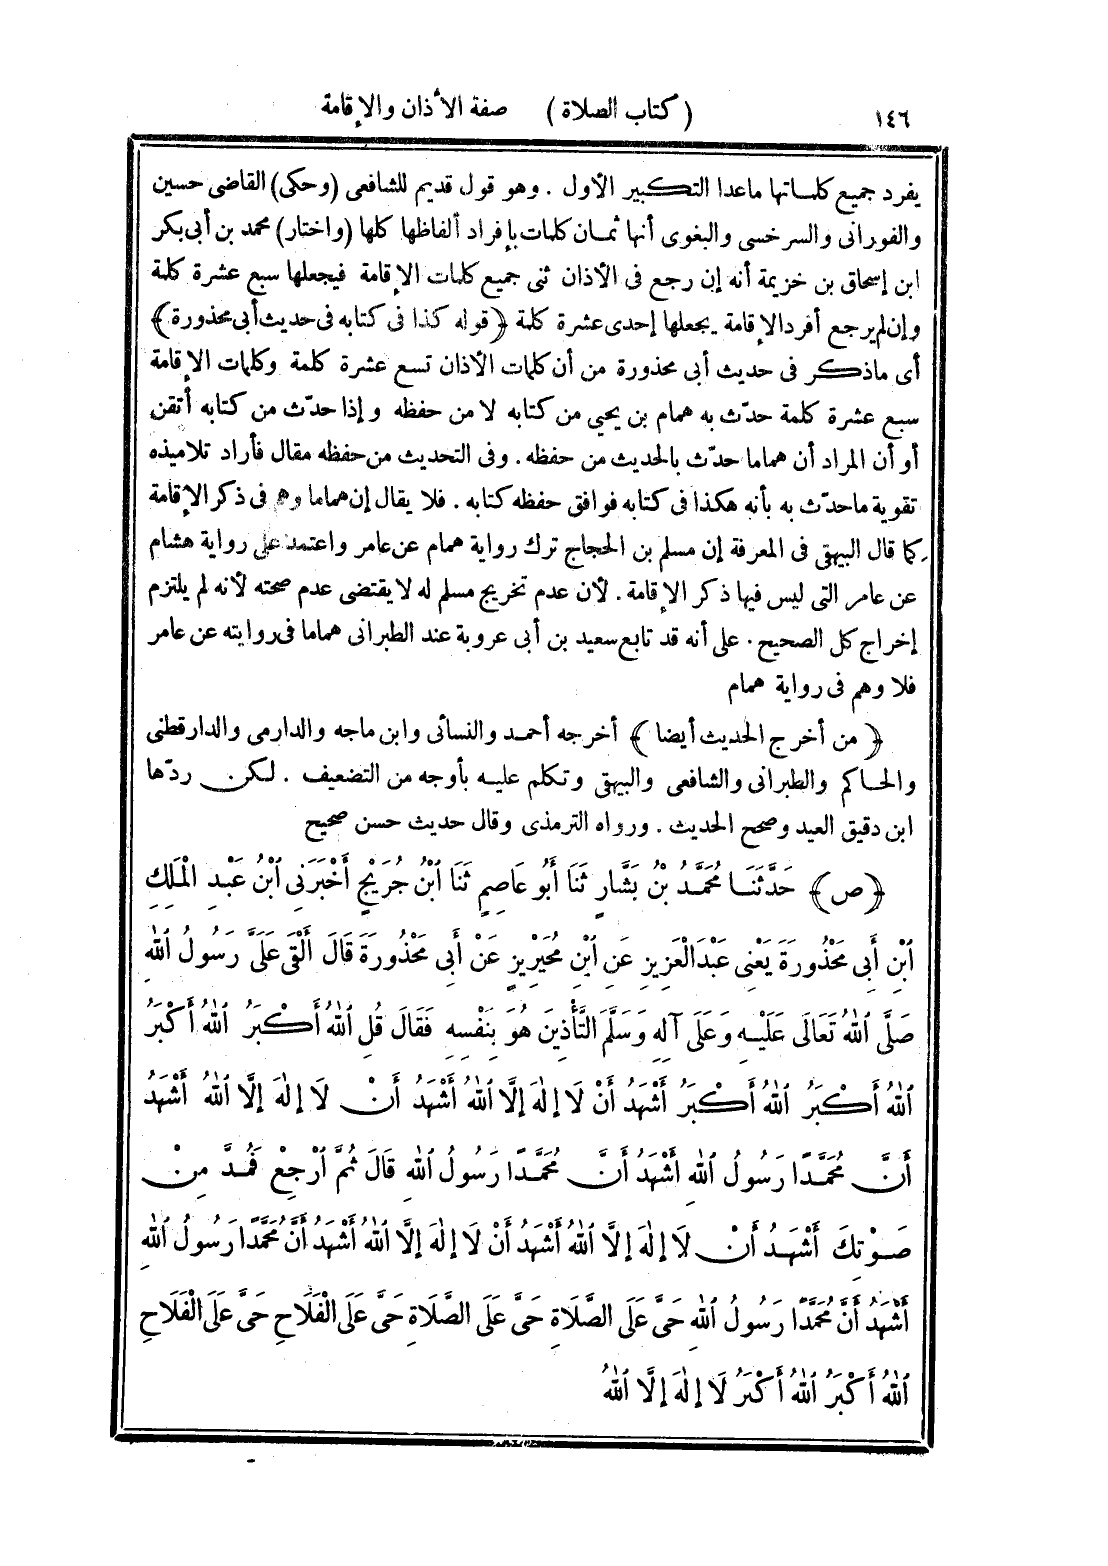 ١٤٦ (كتاب الصلاة) صفة الأذان والإقامة
يفرد جميع كلماتها ماعدا التكبير الأول . وهو قول قديم للشافعى (وحكى) القاضى حسين
والفورانى والسرخسى والبغوى أنها ثمان كلمات بإفراد ألفاظها كلها (واختار) محمد بن أبى بكر
ابن إسحاق بن خزيمة أنه إن رجع فى الأذان ثنى جميع كلمات الإقامة فيجعلها سبع عشرة كلمة
وإن لم يرجع أفرد الإقامة يجعلها إحدى عشرة كلمة ﴿قوله كذا فى كتابه فى حديث أبى محذورة﴾
أى ماذكر فى حديث أبى محذورة من أن كلمات الأذان تسع عشرة كلمة وكلمات الإقامة
سبع عشرة كلمة حدّث به همام بن يحيى من كتابه لا من حفظه وإذا حدّث من كتابه أتقن
أو أن المراد أن هماما حدّث بالحديث من حفظه . وفى التحديث من حفظه مقال فأراد تلاميذه
تقوية ماحدّث به بأنه هكذا فى كتابه فوافق حفظه كتابه . فلا يقال إن هماما وهم فى ذكر الإقامة
كما قال البيهقى فى المعرفة إن مسلم بن الحجاج ترك رواية همام عن عامر واعتمد على رواية هشام
عن عامر التى ليس فيها ذكر الإقامة . لأن عدم تخريج مسلم له لا يقتضى عدم صحته لأنه لم يلتزم
إخراج كل الصحيح . على أنه قد تابع سعيد بن أبى عروبة عند الطبرانى هماما فى روايته عن عامر
فلا وهم فى رواية همام
﴿من أخرج الحديث أيضا﴾ أخرجه أحمد والنسائى وابن ماجه والدارمى والدارقطنى
والحاكم والطبرانى والشافعى والبيهقى وتكلم عليه بأوجه من التضعيف . لكن ردّها
ابن دقيق العيد وصحح الحديث . ورواه الترمذى وقال حديث حسن صحيح
﴿ص﴾ حَدَّثَنَا مُحَمَّدُ بْنُ بَشَّارٍ ثَنَا أَبُو عَاصِمٍ ثَنَا ٱبْنُ جُرَيْجٍ أَخْبَرَنِى ٱبْنُ عَبْدِ الْمَلِكِ
ٱبْنِ أَبِى مَحْذُورَةَ يَعْنِى عَبْدَ الْعَزِيزِ عَنِ ٱبْنِ مُحَيْرِيزٍ عَنْ أَبِى مَحْذُورَةَ قَالَ أَلْقَى عَلَىَّ رَسُولُ ٱللهِ
صَلَّى ٱللهُ تَعَالَى عَلَيْهِ وَعَلَى آلِهِ وَسَلَّمَ التَّأْذِينَ هُوَ بِنَفْسِهِ فَقَالَ قُلِ ٱللهُ أَكْبَرُ ٱللهُ أَكْبَرُ
ٱللهُ أَكْبَرُ ٱللهُ أَكْبَرُ أَشْهَدُ أَنْ لَا إِلٰهَ إِلَّا ٱللهُ أَشْهَدُ أَنْ لَا إِلٰهَ إِلَّا ٱللهُ أَشْهَدُ
أَنَّ مُحَمَّدًا رَسُولُ ٱللهِ أَشْهَدُ أَنَّ مُحَمَّدًا رَسُولُ ٱللهِ قَالَ ثُمَّ ٱرْجِعْ فَمُدَّ مِنْ
صَوْتِكَ أَشْهَدُ أَنْ لَا إِلٰهَ إِلَّا ٱللهُ أَشْهَدُ أَنْ لَا إِلٰهَ إِلَّا ٱللهُ أَشْهَدُ أَنَّ مُحَمَّدًا رَسُولُ ٱللهِ
أَشْهَدُ أَنَّ مُحَمَّدًا رَسُولُ ٱللهِ حَىَّ عَلَى الصَّلَاةِ حَىَّ عَلَى الصَّلَاةِ حَىَّ عَلَى الْفَلَاحِ حَىَّ عَلَى الْفَلَاحِ
ٱللهُ أَكْبَرُ ٱللهُ أَكْبَرُ لَا إِلٰهَ إِلَّا ٱللهُ